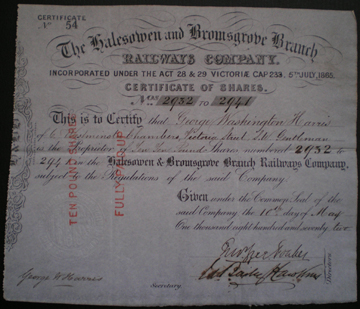 CERTIFICATE
No 54
The Halesowen and Bromsgrove Branch
RAILWAYS COMPANY.
INCORPORATED UNDER THE ACT 28 & 29 VICTORIÆ CAP 238. 5TH JULY 1865.
CERTIFICATE OF SHARES.
Nos 2932 TO 2941
This is to Certify that George Washington Harris
of 6 Westminster Chambers, Victoria Street Gentleman
is the Proprietor of Ten Ten Pound Shares numbered 2932 to
2941 in the Halesowen & Bromsgrove Branch Railways Company,
subject to the Regulations of the said Company
Given under the Common Seal of the
said Company the 10th day of May
One thousand eight hundred and seventy two
Directors
Secretary
TEN POUND SHARES
FULLY PAID UP